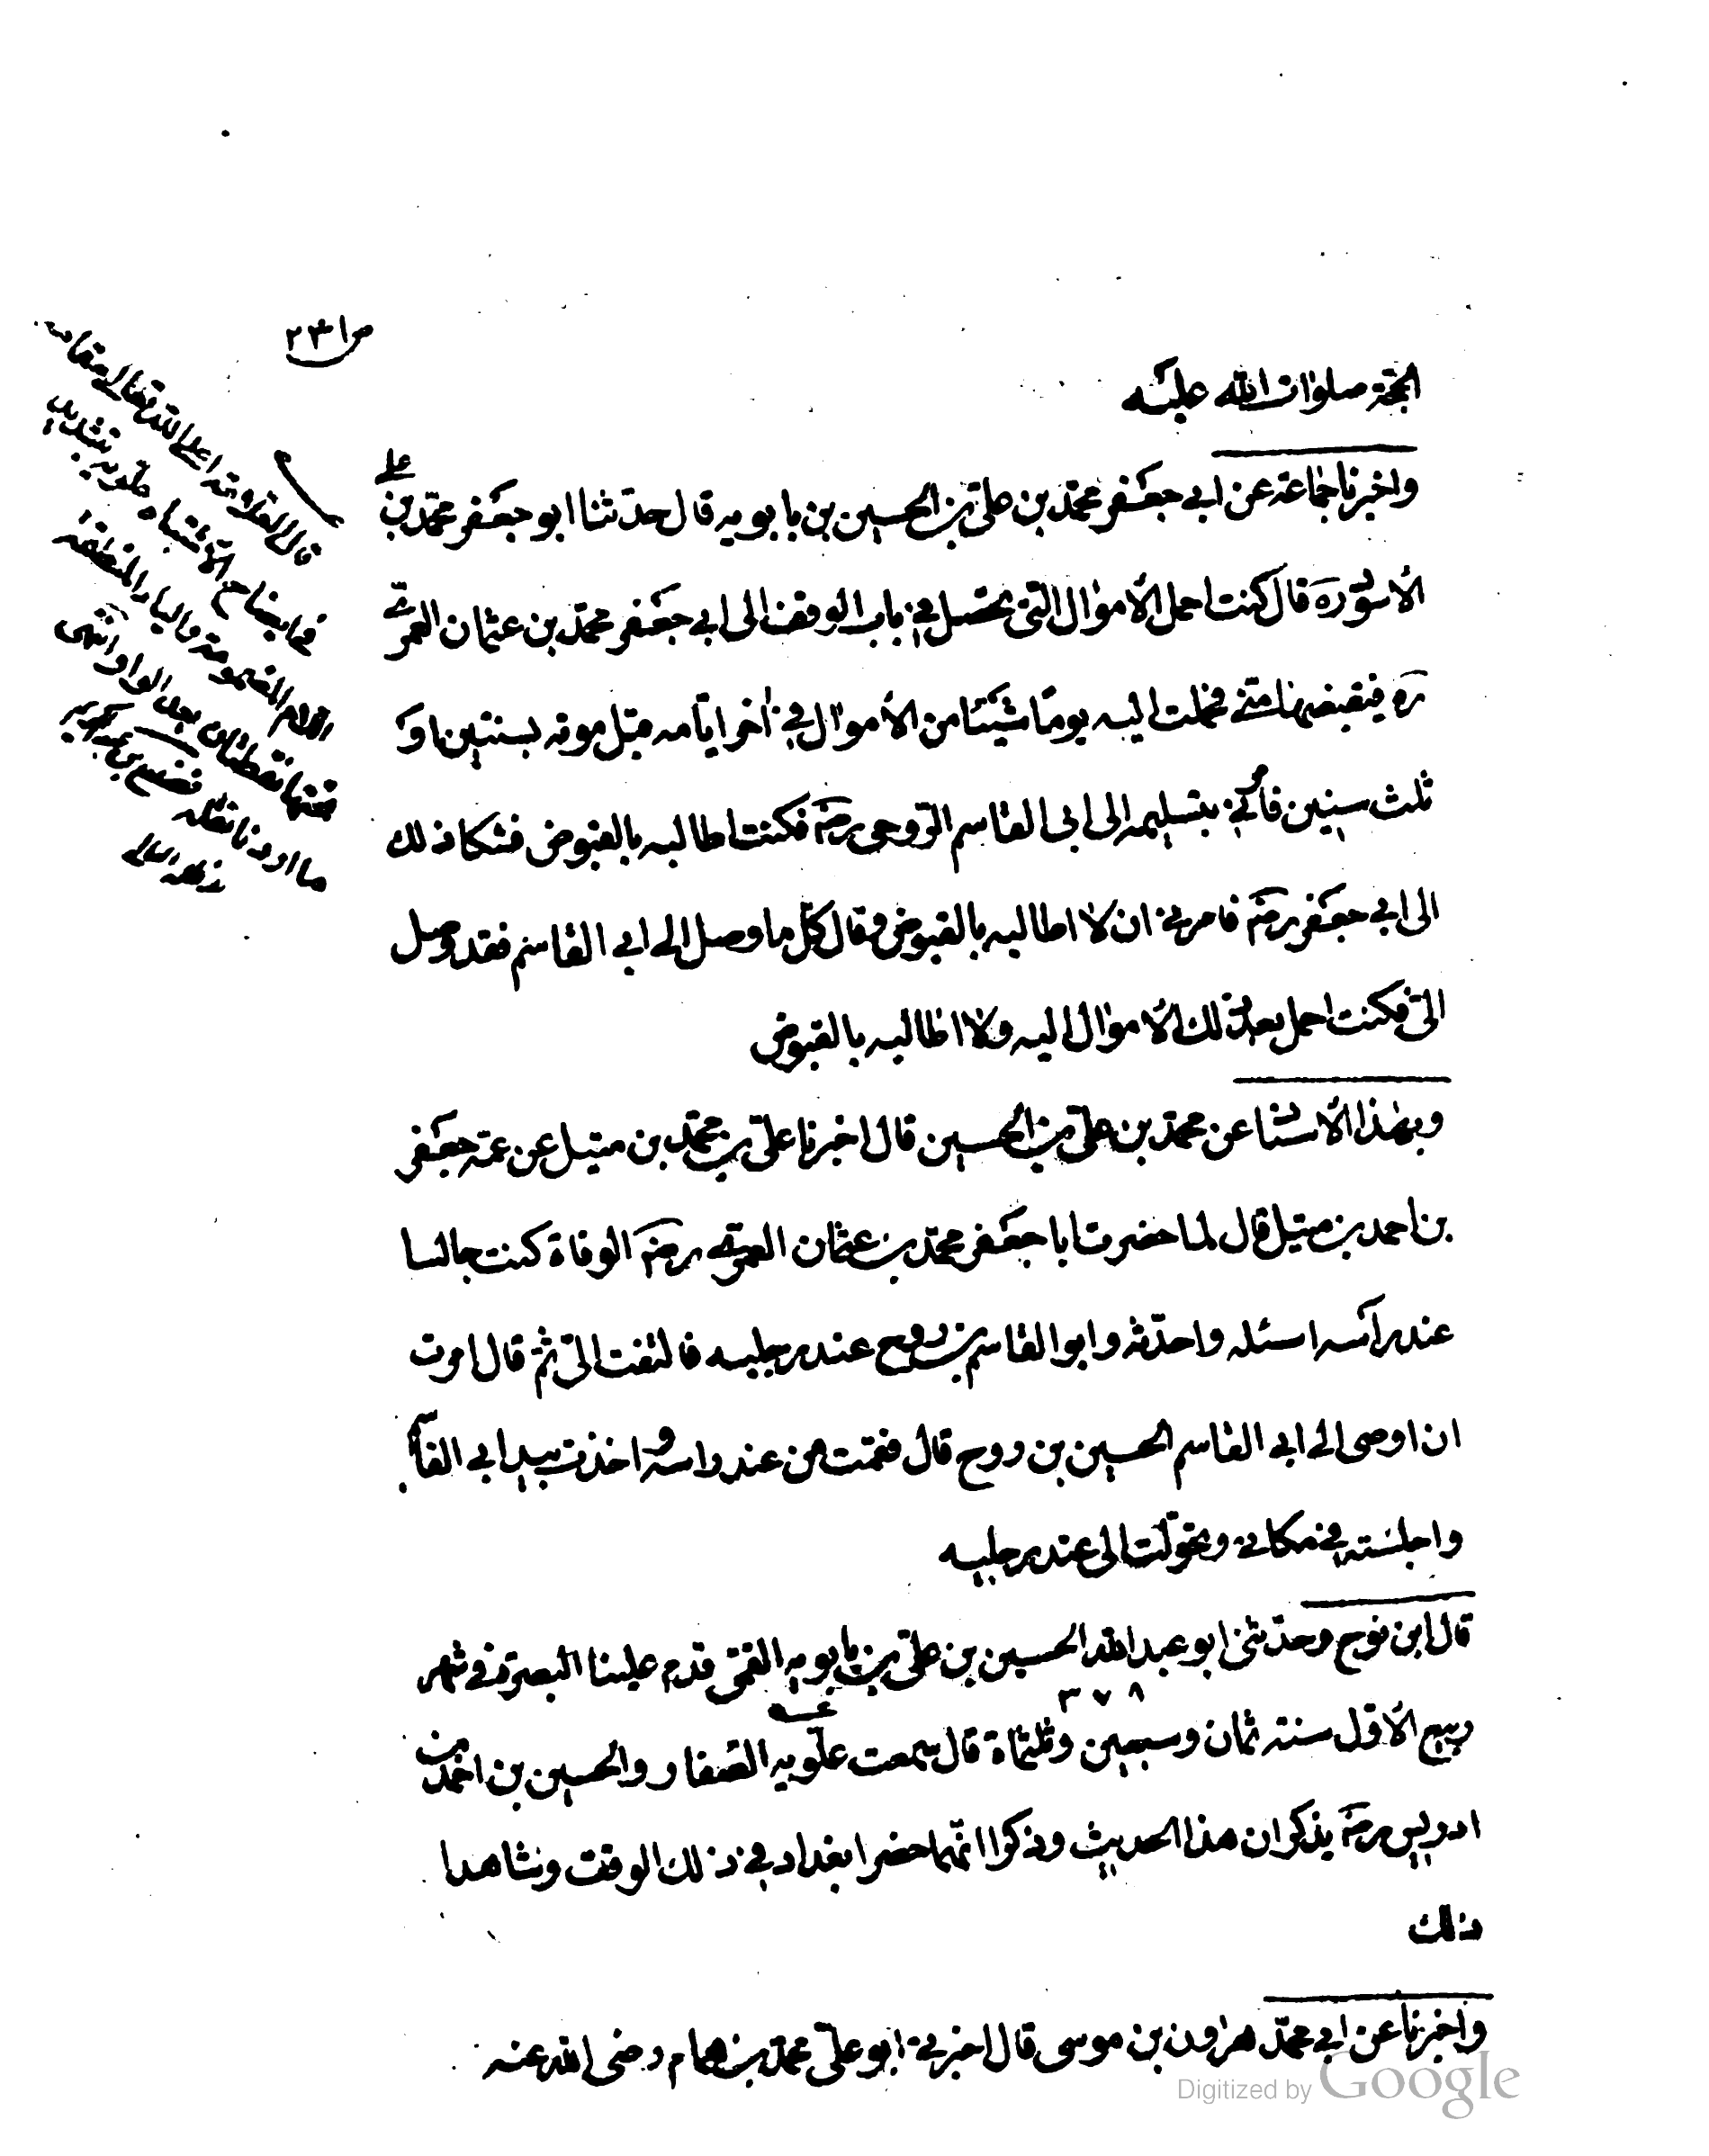 ص ٢٣١
الحجة صلوات الله عليه
واخبرنا جماعة عن ابي جعفر محمد بن علي بن الحسين بن بابويه قال حدثنا ابو جعفر محمد بن علي
الأسود ره قال كنت احمل الأموال التي تحصل في باب الوقف الى ابي جعفر محمد بن عثمان العمري
ره فيقبضها مني فحملت اليه يوما شيئا من الأموال في اخر ايامه قبل موته بسنتين او
ثلث سنين فأمرني بتسليمه الى ابي القاسم الروحي رضه فكنت اطالبه بالقبوض فشكا ذلك
الى ابي جعفر رضه فامرني ان لا اطالبه بالقبوض وقال كل ما وصل الى ابي القاسم فقد وصل
الي فكنت احمل بعد ذلك الأموال اليه ولا اطالبه بالقبوض
وبهذا الأسناد عن محمد بن علي بن الحسين قال اخبرنا علي بن محمد بن متيل عن عمه جعفر
بن احمد بن متيل قال لما حضرت ابا جعفر محمد بن عثمان العمري رضه الوفاة كنت جالسا
عند رأسه اسئله واحدثه وابو القاسم بن روح عند رجليه فالتفت الي ثم قال امرت
ان اوصى الى ابي القاسم الحسين بن روح قال فقمت من عند راسه و اخذت بيد ابي القا
واجلسته في مكاني وتحولت الى عند رجليه
قال ابن نوح وحدثني ابو عبد الله الحسين بن علي بن بابويه القمي قدم علينا البصرة في شهر
٣٧٨
ربيع الأول سنة ثمان وسبعين وثلثماة قال سمعت علوية الصفار والحسين بن احمد بن
ادريس رضه يذكران هذا الحديث وذكرا انهما حضرا بغداد في ذلك الوقت وشاهدا
ذلك
واخبرنا عن ابي محمد هرون بن موسى قال اخبرني ابو علي محمد بن همام رضى الله عنه
Digitized by Google